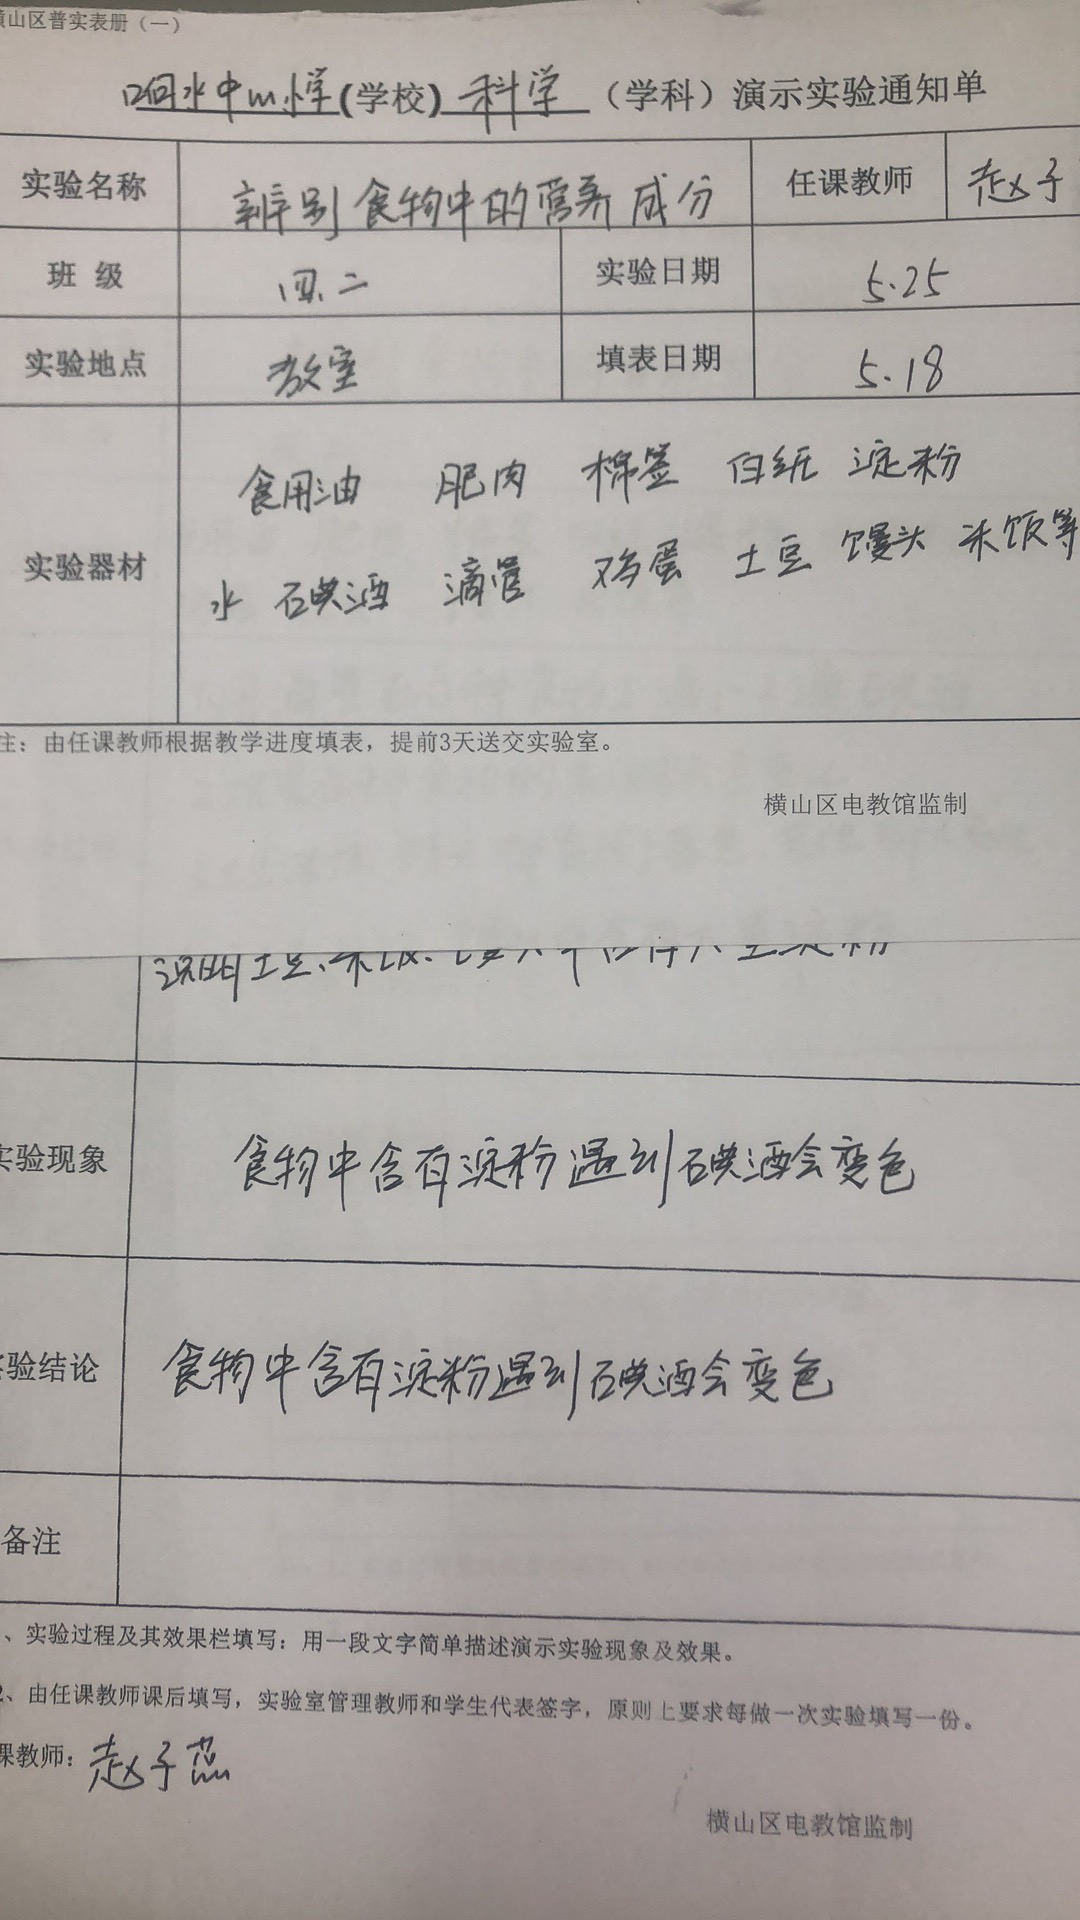 横山区普实表册（一）
响水中心小学(学校) 科学 （学科）演示实验通知单
实验名称 辨别食物中的营养成分 任课教师 赵子
班 级 四.二 实验日期 5.25
实验地点 教室 填表日期 5.18
食用油 肥肉 棉签 白纸 淀粉
实验器材
水 碘酒 滴管 鸡蛋 土豆 馒头 米饭等
注：由任课教师根据教学进度填表，提前3天送交实验室。
横山区电教馆监制
说明土豆、米饭、馒头中
实验现象 食物中含有淀粉遇到碘酒会变色
实验结论 食物中含有淀粉遇到碘酒会变色
备注
、实验过程及其效果栏填写：用一段文字简单描述演示实验现象及效果。
2、由任课教师课后填写，实验室管理教师和学生代表签字，原则上要求每做一次实验填写一份。
课教师：赵子燕
横山区电教馆监制